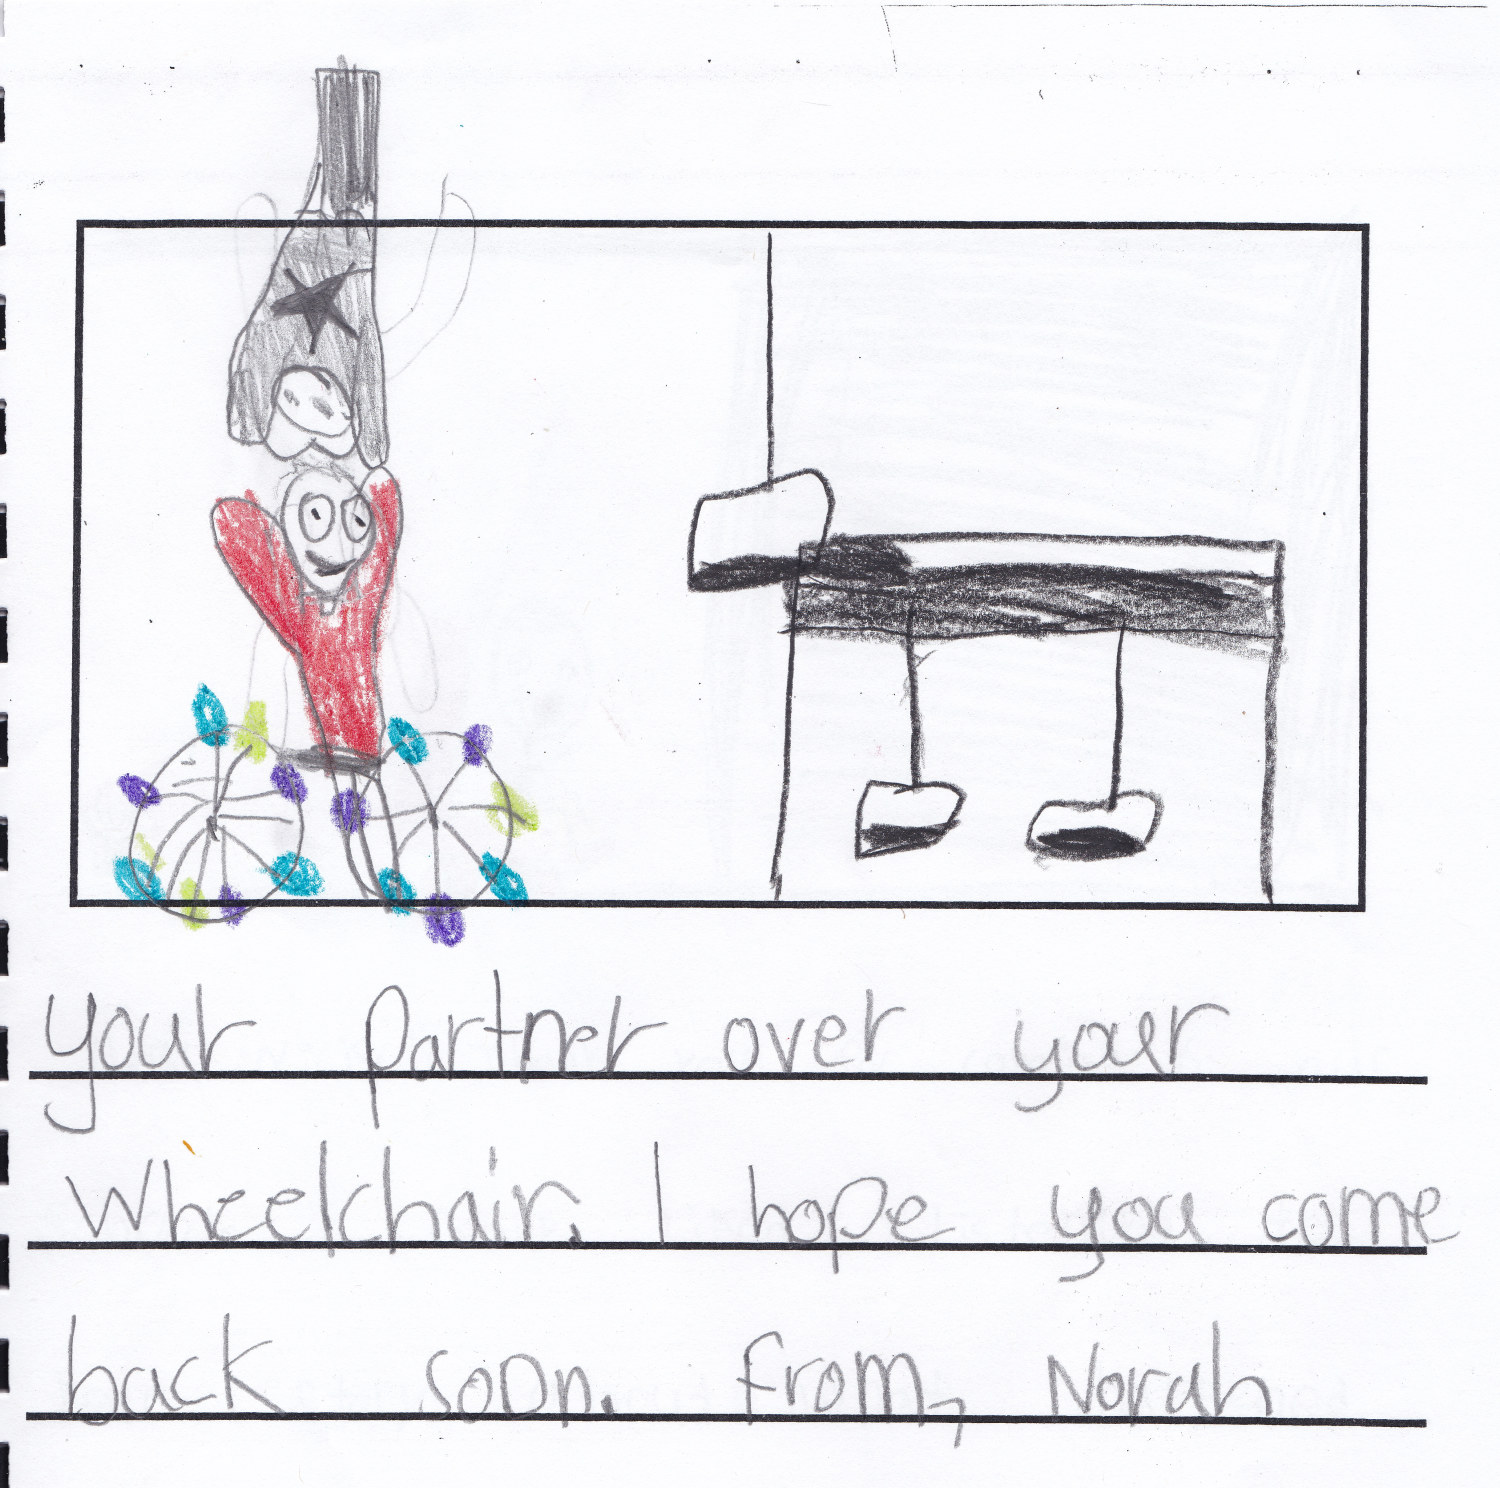 your partner over your
wheelchair. I hope you come
back soon. From, Norah